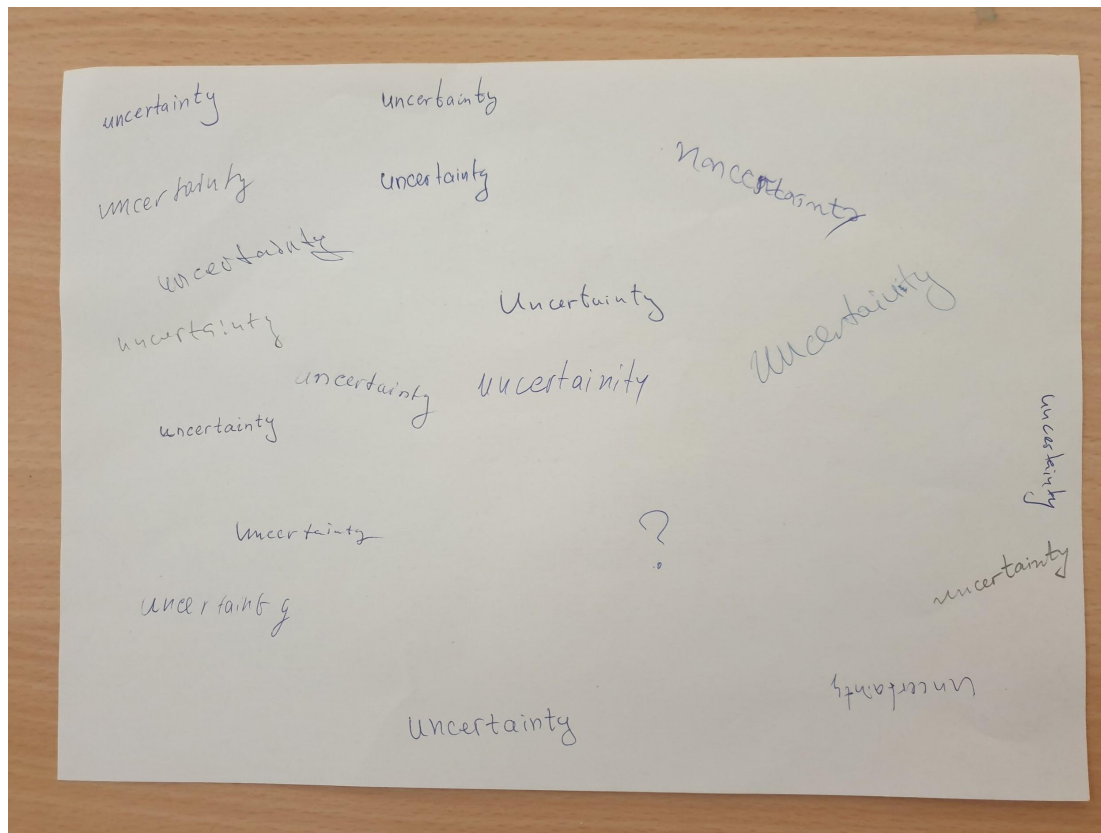 uncertainty
uncertainty
uncertainty
uncertainty
Noncertainty
uncertainty
Uncertainty
Uncertainity
uncertainty
uncertainty
uncertainity
uncertainty
uncertainty
Uncertainty
?
uncertainty
uncertainty
Uncertainty
Uncertainty